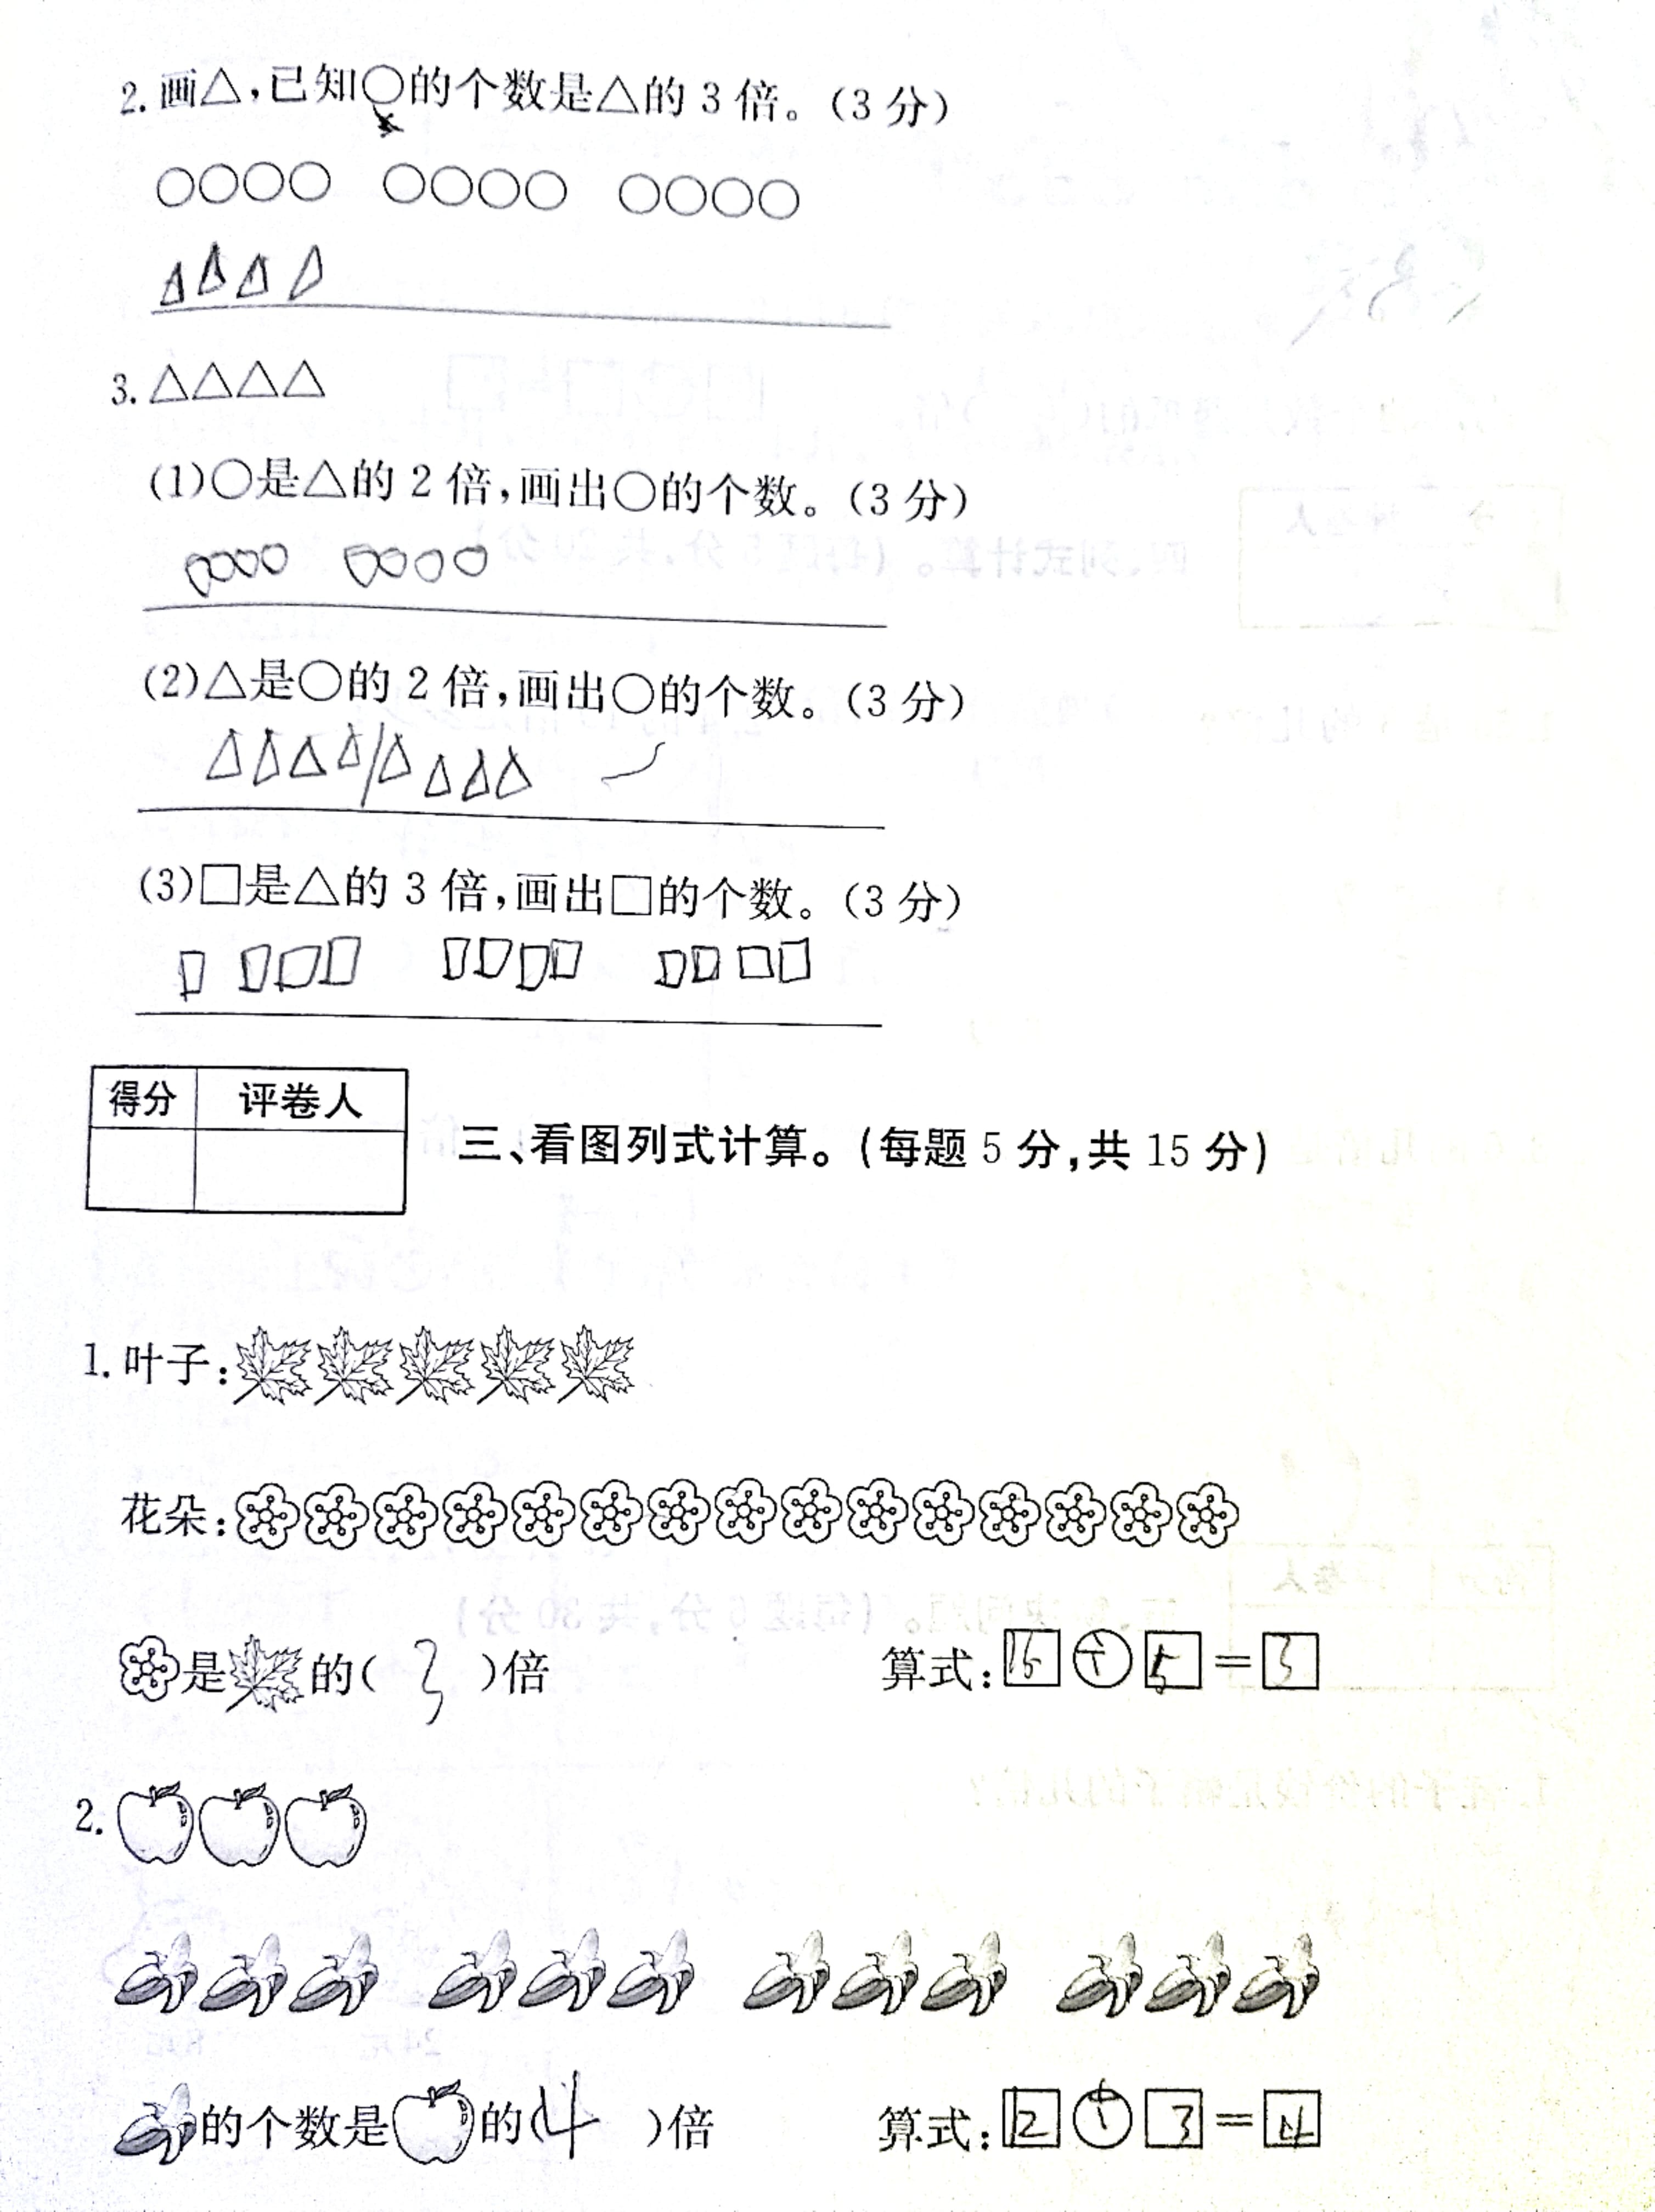 2. 画△,已知○的个数是△的 3 倍。(3 分)
○○○○ ○○○○ ○○○○
△△△△
3. △△△△
(1)○是△的 2 倍,画出○的个数。(3 分)
○○○○ ○○○○
(2)△是○的 2 倍,画出○的个数。(3 分)
△△△△/△△△△
(3)□是△的 3 倍,画出□的个数。(3 分)
□□□□ □□□□ □□□□
得分 评卷人
三、看图列式计算。(每题 5 分,共 15 分)
1. 叶子:
花朵:
是 的( 3 )倍 算式: 15 ÷ 5 = 3
2.
的个数是 的( 4 )倍 算式: 12 ÷ 3 = 4